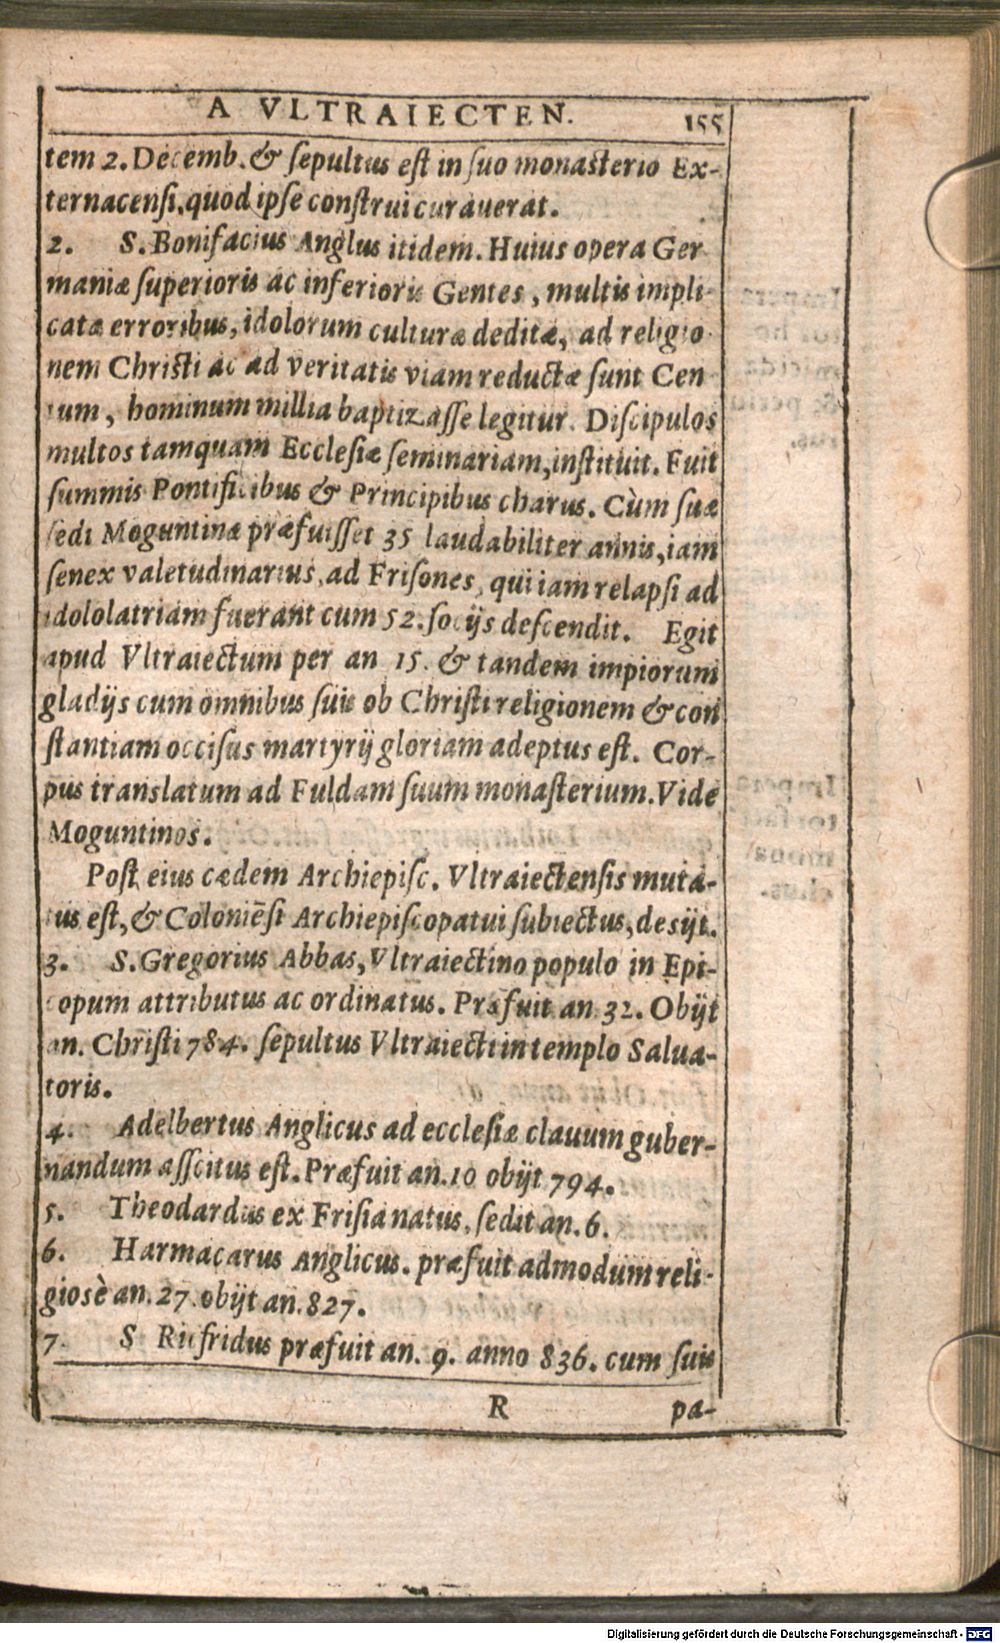 A VLTRAIECTEN. 155
tem 2. Decemb. & ſepultus eſt in ſuo monasterio Ex-
ternacenſi, quod ipſe conſtrui curauerat.
2. S. Bonifacius Anglus itidem. Huius opera Ger
maniæ ſuperioris ac inferioris Gentes, multis impli-
catæ erroribus, idolorum culturæ deditæ, ad religio-
nem Christi ac ad veritatis viam reductæ ſunt Cen
tum, hominum millia baptizaſſe legitur. Diſcipulos
multos tamquam Eccleſiæ ſeminariam, inſtituit. Fuit
ſummis Pontificibus & Principibus charus. Cùm ſuæ
ſedi Moguntinæ præfuiſſet 35 laudabiliter annis, iam
ſenex valetudinarius, ad Friſones, qui iam relapſi ad
idololatriam fuerant cum 52. ſocijs deſcendit. Egit
apud Vltraiectum per an 15. & tandem impiorum
gladijs cum omnibus ſuis ob Chriſti religionem & con
ſtantiam occiſus martyrij gloriam adeptus eſt. Cor-
pus translatum ad Fuldam ſuum monaſterium. Vide
Moguntinos.
Poſt eius cædem Archiepiſc. Vltraiectenſis muta-
tus eſt, & Coloniēſi Archiepiſcopatui ſubiectus, deſijt.
3. S. Gregorius Abbas, Vltraiectino populo in Epi-
ſcopum attributus ac ordinatus. Præfuit an. 32. Obijt
an. Chriſti 784. ſepultus Vltraiecti in templo Salua-
toris.
4. Adelbertus Anglicus ad eccleſiæ clauum guber-
nandum aſſcitus eſt. Præfuit an. 10 obijt 794.
5. Theodardus ex Friſia natus, ſedit an. 6.
6. Harmacarus Anglicus. præfuit admodum reli-
gioſè an. 27. obijt an. 827.
7. S Rixfridus præfuit an. 9. anno 836. cum ſuis
R pa-
Digitalisierung gefördert durch die Deutsche Forschungsgemeinschaft - DFG